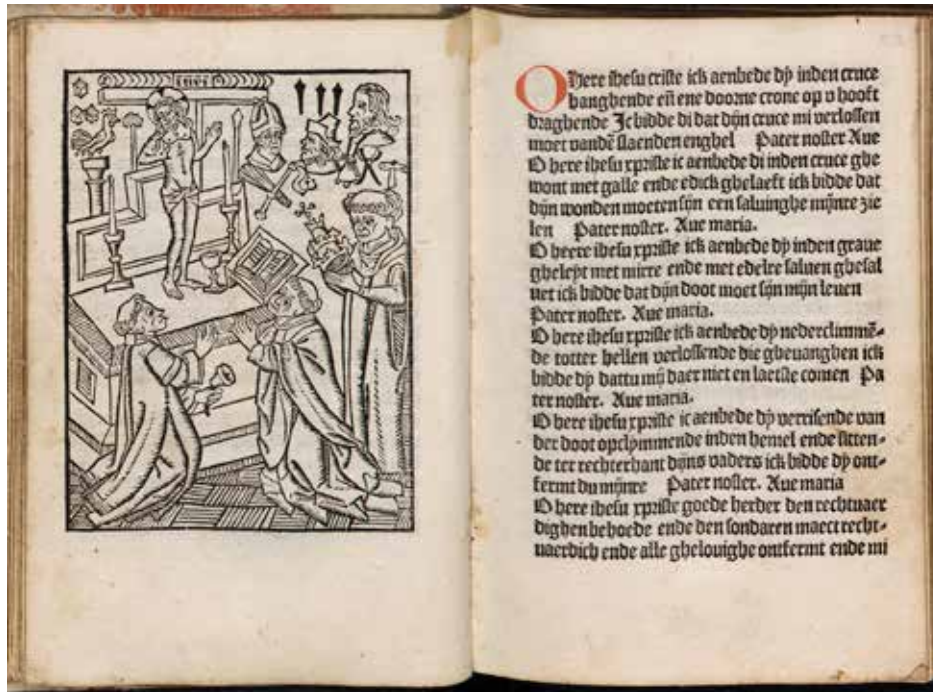 inri
O Here ihesu criste ick aenbede dy inden cruce
hanghende eñ ene doorne crone op v hooft
draghende Ic bidde di dat dijn cruce mi verlossen
moet vandē slaenden enghel Pater noster Aue
O here ihesu xpriste ic aenbede di inden cruce ghe
wont met galle ende edick ghelaeft ick bidde dat
dijn wonden moeten sijn een saluinghe mijnre zie
len Pater noster. Aue maria.
O heere ihesu xpriste ick aenbede dy inden graue
gheleyt met mirre ende met edelre saluen ghesal
uet ick bidde dat dijn doot moet sijn mijn leuen
Pater noster. Aue maria.
O here ihesu xpriste ick aenbede dy nederclimmē-
de totter hellen verlossende die gheuanghen ick
bidde dy dattu mij daer niet en laetste comen Pa
ter noster. Aue maria.
O here ihesu xpriste ic aenbede dy verrisende van
der doot opclymmende inden hemel ende sitten-
de ter rechterhant dijns vaders ick bidde dy ont-
fermt du mijnre Pater noster. Aue maria
O here ihesu xpriste goede herder den rechtuaer
dighen behoede ende den sondaren maect recht-
uaerdich ende alle ghelouighe ontfermt ende mi